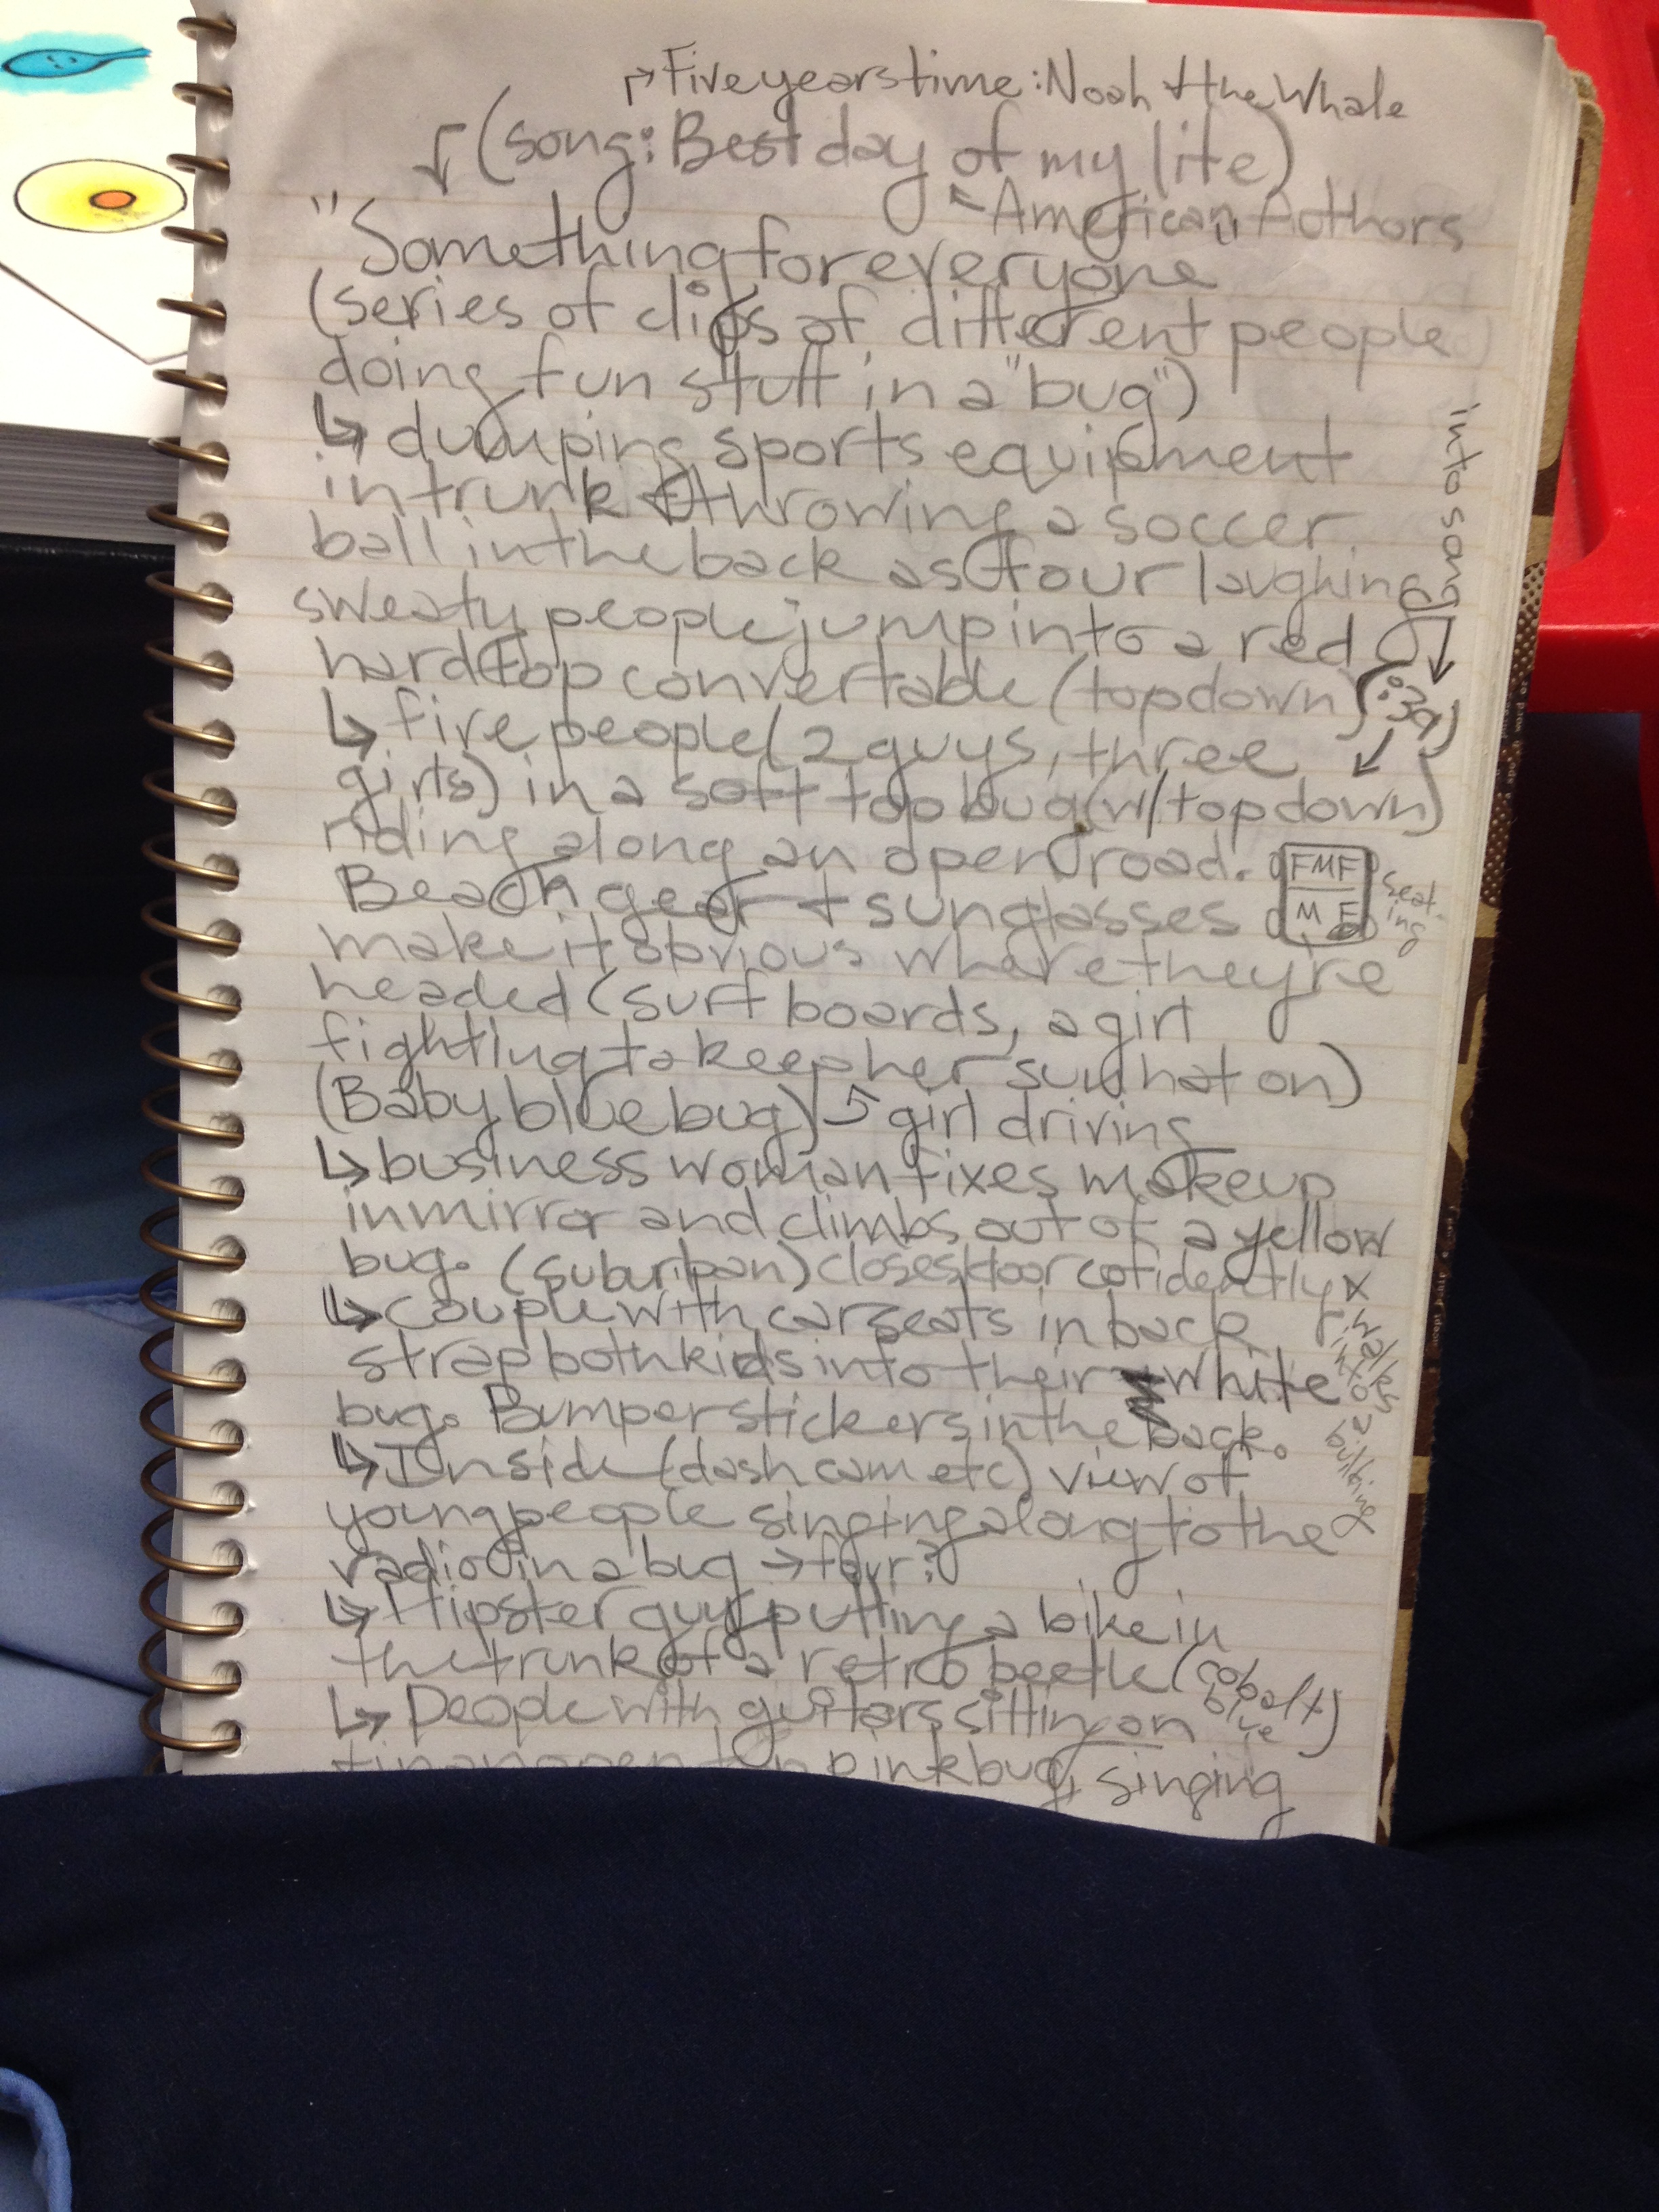 ↱Five years time: Noah & the Whale
↓(song: Best day of my life)
↖American Authors
"Something for everyone"
(series of clips of different people
doing fun stuff in a "bug")
↳ dumping sports equipment
in trunk & throwing a soccer
ball in the back as four laughing
sweaty people jump into a red
hard top convertable (top down)
into song → (:39)
↳ five people (2 guys, three
girls) in a soft top bug (w/ top down)
riding along an open road.
FMF
M F
seat-
ing
Beach gear + sunglasses
make it obvious where they're
headed (surf boards, a girl
fighting to keep her sun hat on)
(Baby blue bug) ⤴ girl driving
↳ business woman fixes makeup
in mirror and climbs out of a yellow
bug. (suburban) closes door cofidently x
walks
into a
building
↳ couple with carseats in back
strap both kids into their white
bug. Bumper stickers in the back.
↳ Inside (dash cam etc) view of
young people singing along to the
radio in a bug → four?
↳ Hipster guy putting a bike in
the trunk of a retro beetle (cobalt
blue)
↳ People with guitars sitting on
pink bug, singing